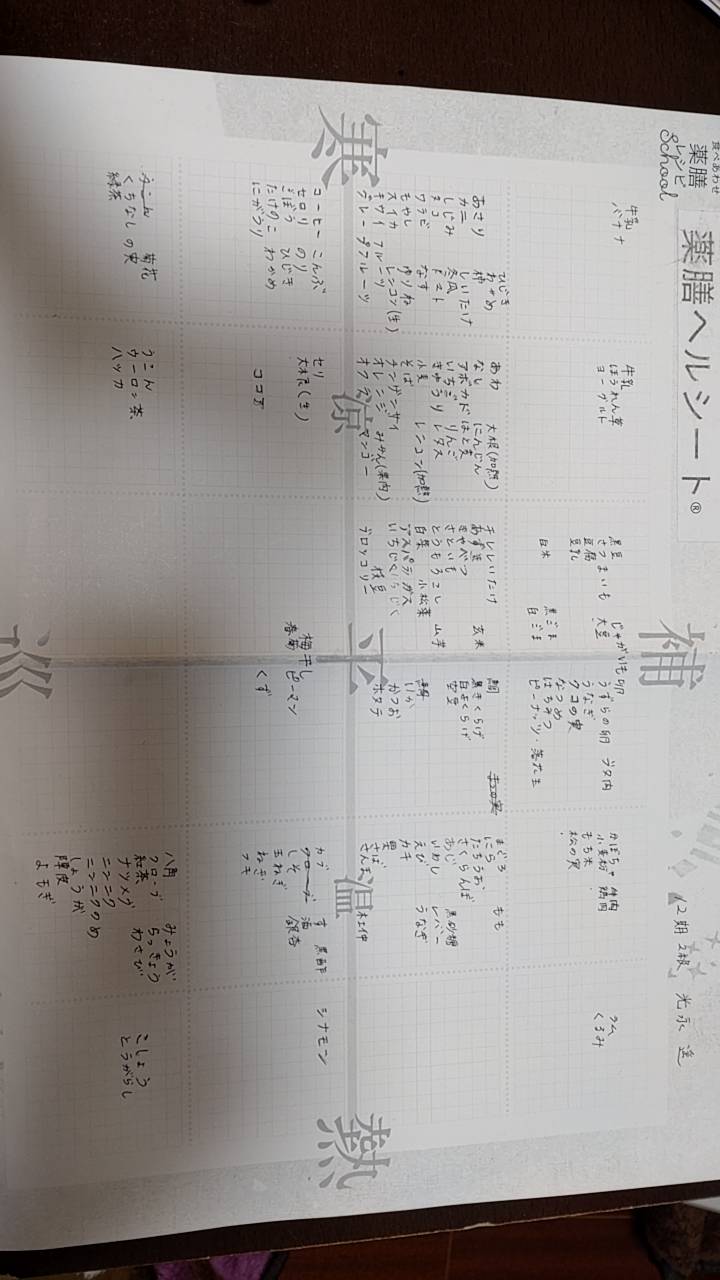 食べあわせ
薬膳
レシピ
School
薬膳ヘルシート®
12期
光永 遥
補
寒
涼
平
温
熱
巡
牛乳
バナナ
牛乳
ほうれん草
ヨーグルト
黒豆
さつまいも じゃがいも
豆腐 大豆
豆乳
白米 黒ごま
白ごま
卵
うずらの卵 ブタ肉
うなぎ
クコの実
なつめ
はちみつ
ピーナッツ・落花生
かぼちゃ 牛肉
小麦粉 鶏肉
もち米
松の実
ラム
くるみ
ひじき
あさり わかめ
カニ 柿
しじみ しいたけ
タコ 冬瓜
ワラビ トマト
もやし なす
スイカ ゆりね
キウイフルーツ レンコン(生)
グレープフルーツ
あわ 大根(加熱)
なし にんじん
アボカド はと麦
いちご りんご
きゅうり レタス
小麦 レンコン(加熱)
そば
チンゲンサイ
オレンジ みかん(果肉)
オクラ マンゴー
干ししいたけ 玄米
あずき
きゃべつ
さといも
とうもろこし 山芋
白菜 小松菜
アスパラガス
いちじく
枝豆
ブロッコリー
鯛
黒きくらげ
白きくらげ
空豆
いか
かつお
ホタテ
まぐろ もも
にら
たちうお
さくらんぼ
あじ 黒砂糖
いわし レバー
えび うなぎ
カキ
栗
さば
さんま
杜仲
コーヒー こんぶ
セロリ のり
ごぼう ひじき
たけのこ わかめ
にがうり
セリ
大根(生)
ココア
梅干し
春菊 ピーマン
くず
カブ す 黒酢
しそ 酒
玉ねぎ 銀杏
ねぎ
フキ
シナモン
菊花
くちなしの実
緑茶
うこん
ウーロン茶
ハッカ
八角 みょうが
クローブ らっきょう
紅茶 わさび
ナツメグ
ニンニク
ニンニクのめ
しょうが
陳皮
よもぎ
こしょう
とうがらし